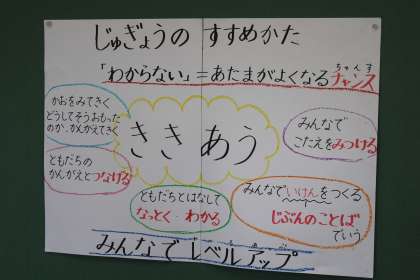 じゅぎょうの すすめかた
「わからない」=あたまがよくなるチャンス
ちゃんす
かおをみてきく
どうしてそうおもった
のか、かんがえてきく
ききあう
みんなで
こたえをみつける
ともだちの
かんがえとつなげる
ともだちとはなして
なっとく・わかる
みんなでいけんをつくる
じぶんのことば
でいう
みんなでレベルアップ